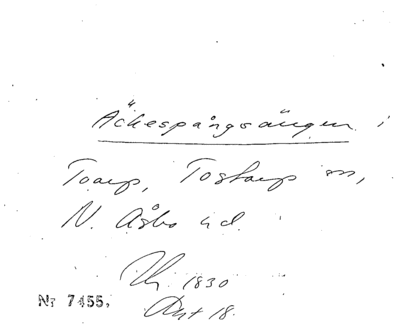 Äckespångsängen i
Toarp, Tostarp sn,
N. Åsbo hd.
1830
Akt 18.
Nr 7455.